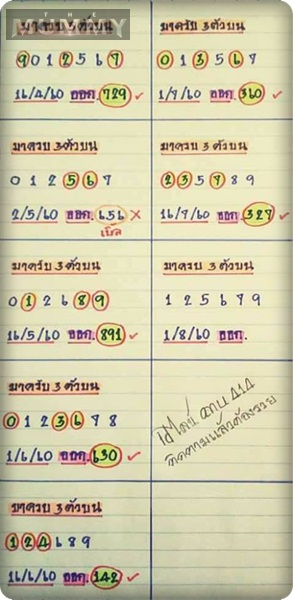 MUMMY
มาครบ 3 ตัวบน
9 0 1 2 5 6 7
16/4/60 ออก. 729 ✓
มาครบ 3 ตัวบน
0 1 2 5 6 7
2/5/60 ออก. 656 ✗
เบิ้ล
มาครบ 3 ตัวบน
0 1 2 6 8 9
16/5/60 ออก. 891 ✓
มาครบ 3 ตัวบน
0 1 2 3 6 7 8
1/6/60 ออก. 630 ✓
มาครบ 3 ตัวบน
1 2 4 6 8 9
16/6/60 ออก. 142 ✓
มาครบ 3 ตัวบน
0 1 3 5 6 7
1/7/60 ออก. 360 ✓
มาครบ 3 ตัวบน
2 3 5 7 8 9
16/7/60 ออก. 327 ✓
มาครบ 3 ตัวบน
1 2 5 6 7 9
1/8/60 ออก.
414
ติดตามแล้วต้องรวย